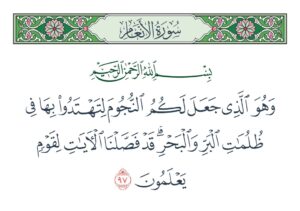 سُورَةُ الأَنْعَامِ
بِسْمِ اللَّهِ الرَّحْمَٰنِ الرَّحِيمِ
وَهُوَ ٱلَّذِى جَعَلَ لَكُمُ ٱلنُّجُومَ لِتَهْتَدُوا۟ بِهَا فِى
ظُلُمَٰتِ ٱلْبَرِّ وَٱلْبَحْرِ ۗ قَدْ فَصَّلْنَا ٱلْءَايَٰتِ لِقَوْمٍ
يَعْلَمُونَ ٩٧